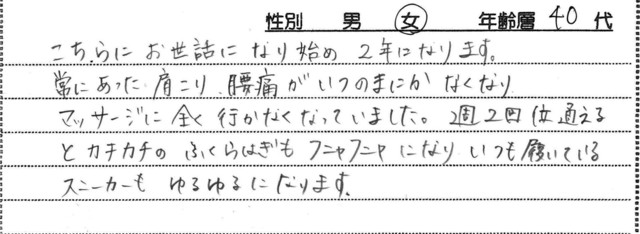 性別 男 女 年齢層 40 代
こちらに お世話に なり始め 2年になります。
常にあった肩こり、腰痛がいつのまにかなくなり
マッサージに全く行かなくなっていました。週2回位通える
とカチカチのふくらはぎもフニャフニャになりいつも履いている
スニーカーもゆるゆるになります。